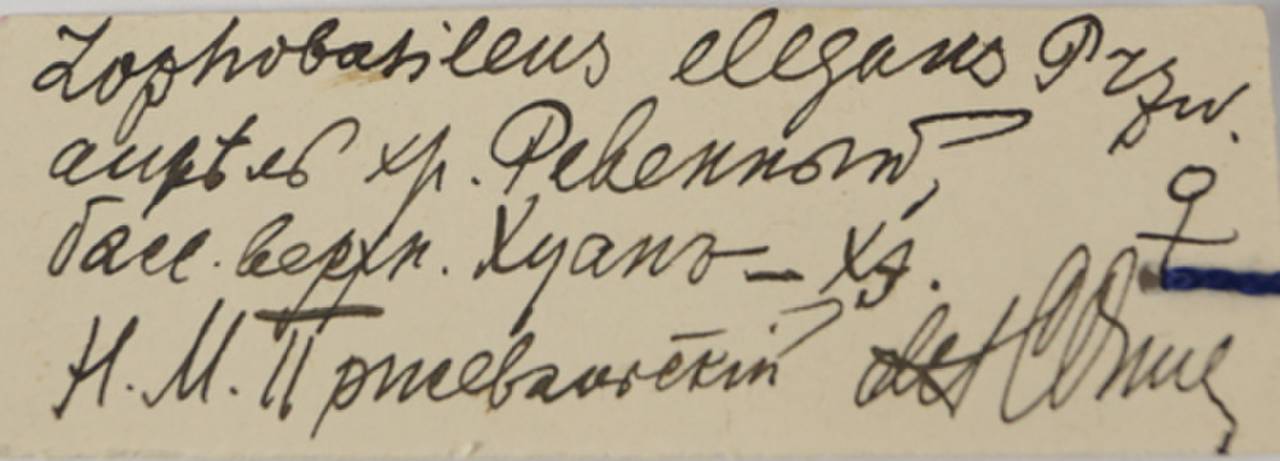 Lophobasileus elegans Przw.
апрѣль хр. Ревенный,
♀
басс. верхн. Хуанъ-хэ.
Н. М. Пржевальскій det